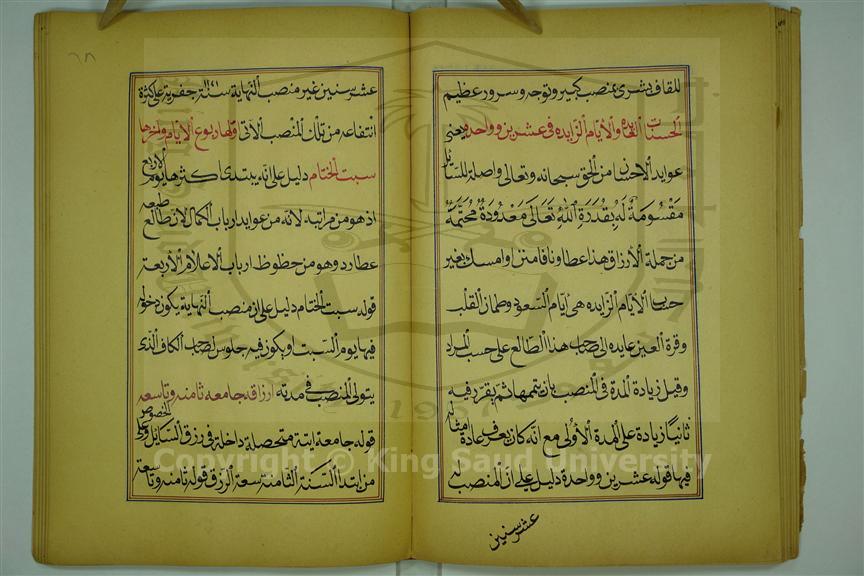 للقاف بشرى بمنصب كبير وتوجه وسرور عظيم
الحسنات والأيام الزايده فى عشرين وواحده يعنى
عوايد الاحسان من الحق سبحانه وتعالى واصلة للسائل
مقسومة له بقدرة الله تعالى معدودة محتمة
من جملة الارزاق هذا عطاونا فامنن او امسك بغير
حساب الأيام الزايده هى ايام السعود وطمان القلب
وقرة العين عايده الى صاحب هذا الطالع على حسب المراد
وقيل زيادة المدة فى المنصب بان يتمها ثم يقرر فيه
ثانيا زيادة على المدة الأولى مع انه كان يعرف عادة امثاله
فيها قوله عشرين وواحدة دليل على ان المنصب به
عشر سنين
٦٨
عشر سنين غير منصب النهاية ستة جفرية على كثرة
انتفاعه من تلك المنصب الاتى بوع الايام واخرها
سبت الختام دليل على انه يبتدى اكثرها يوم الاربع
اذ هو من مراتبه لانه من عوايد ارباب الكمال لان طالع طبعه
عطارد وهو من حظوظ ارباب الاعلام الاربعة
قوله سبت الختام دليل على ان منصب النهاية يكون دخوله
فيها يوم السبت او يكون فيه جلوس صاحب الكاف الذى
يتولى المنصب فى مدته ارزاقه جامعه ثامنه وتاسعه
قوله جامعة اتية متحصلة داخلة فى رزق السايل وعلى الخصوص
من ابتدا السنة الثامنة سعة الرزق قوله ثامنه وتاسعة
Copyright © King Saud University
1957